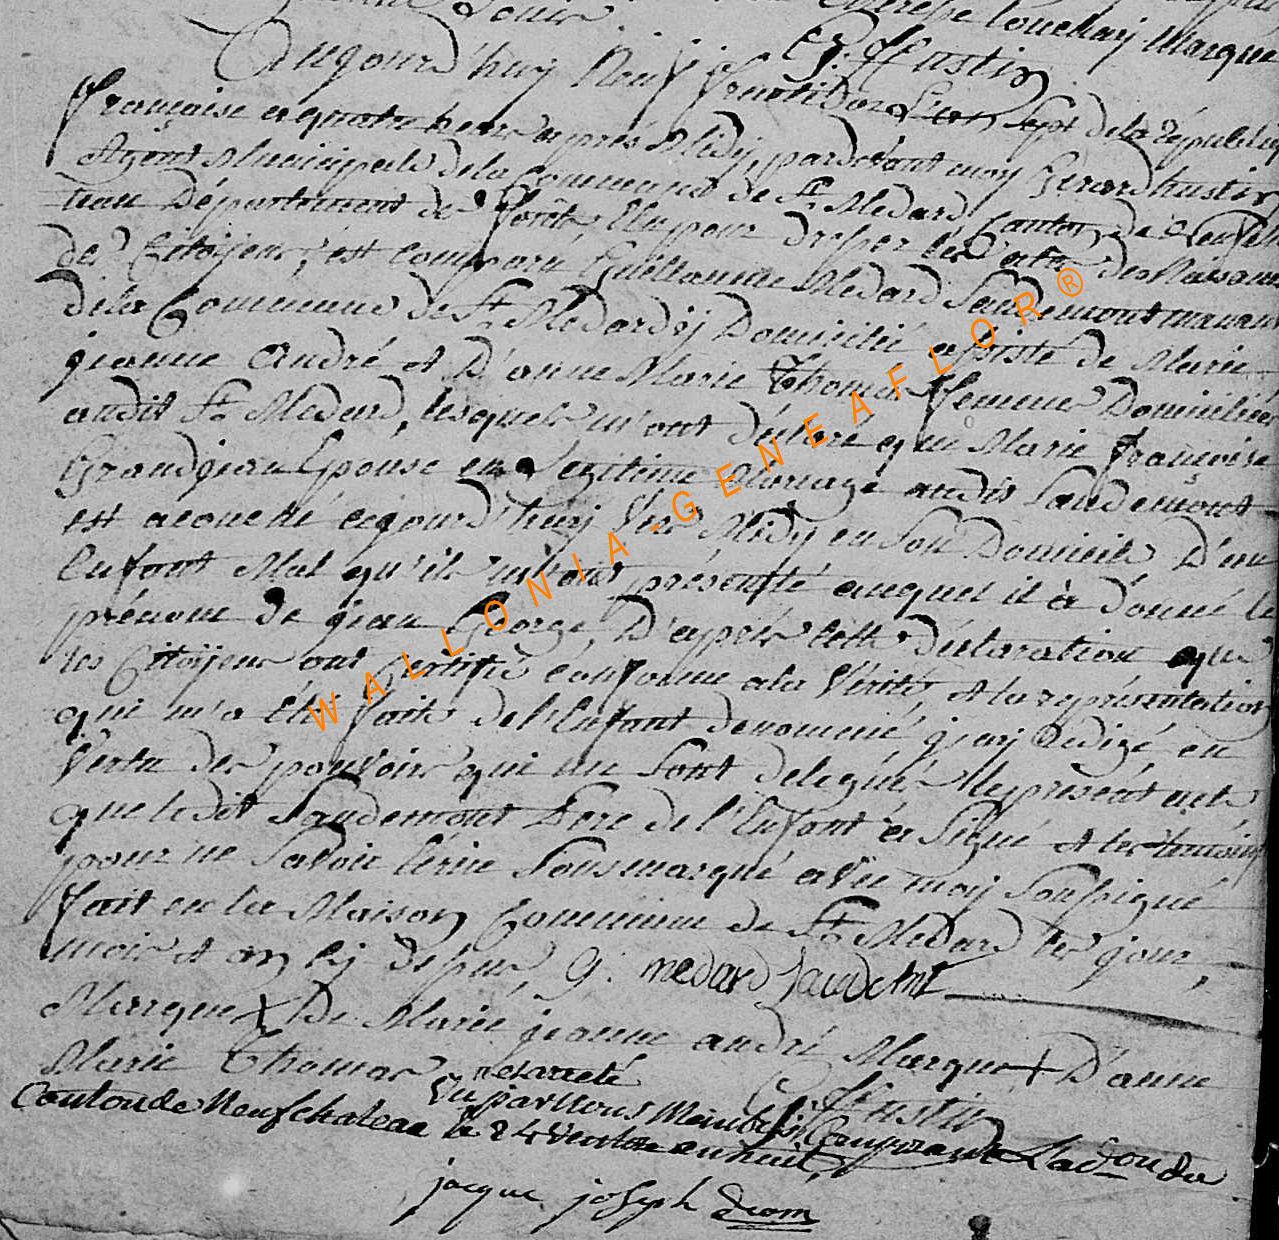 Louis
Therese Pouchay Marque
G. Hustin
Aujourd'huy Neuf fructidor L'an Sept de la république
françoise a quatre heur après Midy, pardevant moy Gerard hustin
Agent Municipale de la Commune de St Medard Canton de Neufchâ
teau Département de forêt, Elu pour dresser les actes des Naissance
des Citoyens, est comparu Guillaume Medard Saudemont manant
de la Commune de St Medard y Domicilié assisté de Marie
jeanne André et D'anne Marie Thomas femmes Domiciliées
audit St Medard, lesquels m'ont déclare que Marie françoise
Grandjean Epouse en Legitime Mariage audit Saudemont
est acouché aujourd'huy Vers Midy en Son Domicile D'un
Enfant Mal qu'ils m'ont présenté auquel il à donné le
prénom de jean George, D'après cette déclaration que
les Citoÿens ont Certifié conforme ala Vérité, et la représentation
qui m'a été faite de l'Enfant denommé, j'ay Redigé, en
Vertu des pouvoirs qui me Sont delegué le présent acte
que ledit Saudemont Pere de l'Enfant a Signé et les témoins
pour ne Savoir Ecrire Sousmarqué avec moy Soussigné
fait en la Maison Commune de St Medard les jour,
mois et an cy dessus G. medard Saudemt
Marque + De Marie jeanne andré Marque + D'anne
Marie Thomas G. Hustin
et arreté
Vu par Nous Membres Composant L'adon du
Canton de Neufchateau le 24 Ventose an huit,
jacque joseph
WALLONIA-GENEAFLOR®